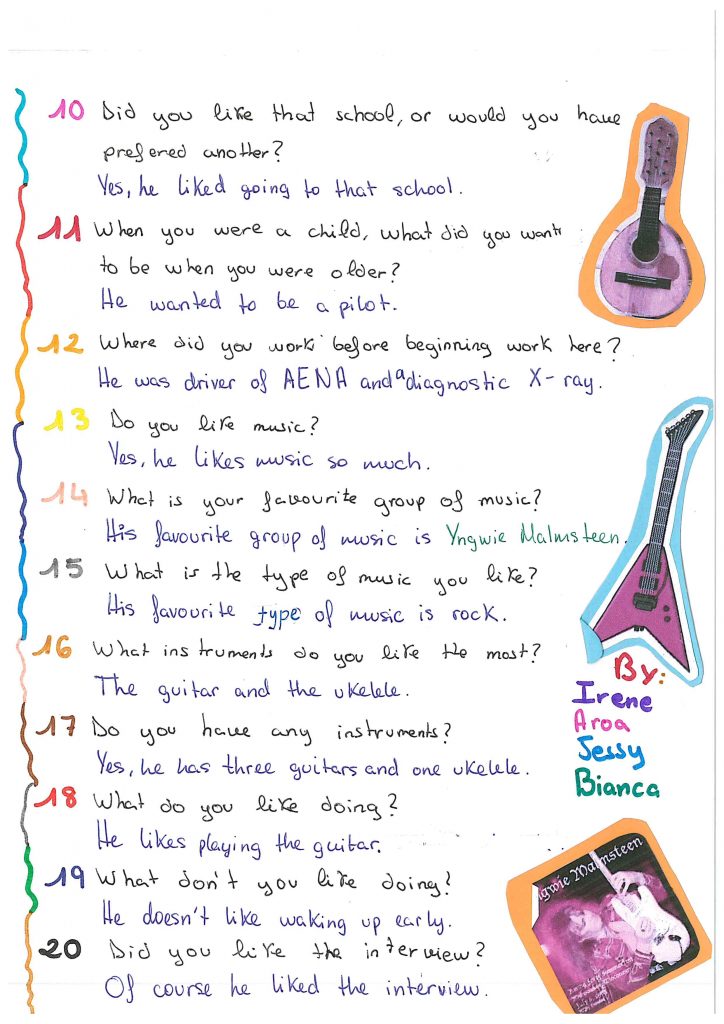 10 Did you like that school, or would you have
prefered another?
Yes, he liked going to that school.
11 When you were a child, what did you want
to be when you were older?
He wanted to be a pilot.
12 Where did you work before beginning work here?
He was driver of AENA and a diagnostic X-ray.
13 Do you like music?
Yes, he likes music so much.
14 What is your favourite group of music?
His favourite group of music is Yngwie Malmsteen.
15 What is the type of music you like?
His favourite type of music is rock.
16 What instruments do you like the most?
The guitar and the ukelele.
17 Do you have any instruments?
Yes, he has three guitars and one ukelele.
18 What do you like doing?
He likes playing the guitar.
19 What don't you like doing?
He doesn't like waking up early.
20 Did you like the interview?
Of course he liked the interview.
By:
Irene
Aroa
Jessy
Bianca
ngwie Malmsteen